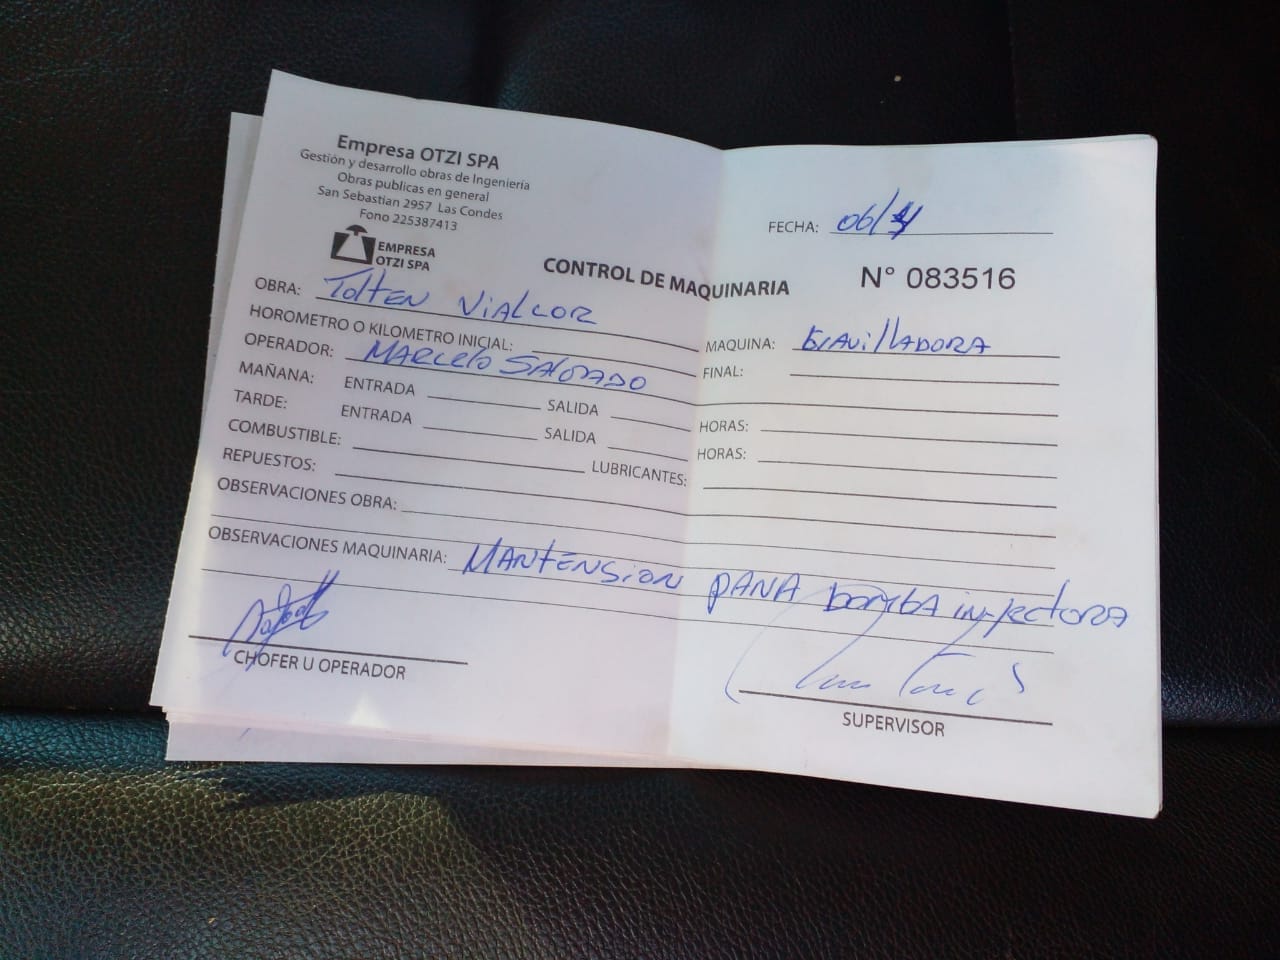 Empresa OTZI SPA
Gestión y desarrollo obras de Ingeniería
Obras publicas en general
San Sebastian 2957 Las Condes
Fono 225387413
EMPRESA
OTZI SPA
CONTROL DE MAQUINARIA
FECHA: 06/
N° 083516
OBRA: Tolten Vialcor
HOROMETRO O KILOMETRO INICIAL:
MAQUINA: GRAVILLADORA
OPERADOR: MARCELO SALGADO
FINAL:
MAÑANA: ENTRADA SALIDA HORAS:
TARDE: ENTRADA SALIDA HORAS:
COMBUSTIBLE: LUBRICANTES:
REPUESTOS:
OBSERVACIONES OBRA:
OBSERVACIONES MAQUINARIA: MANTENSION PANA bomba injectora
CHOFER U OPERADOR
SUPERVISOR